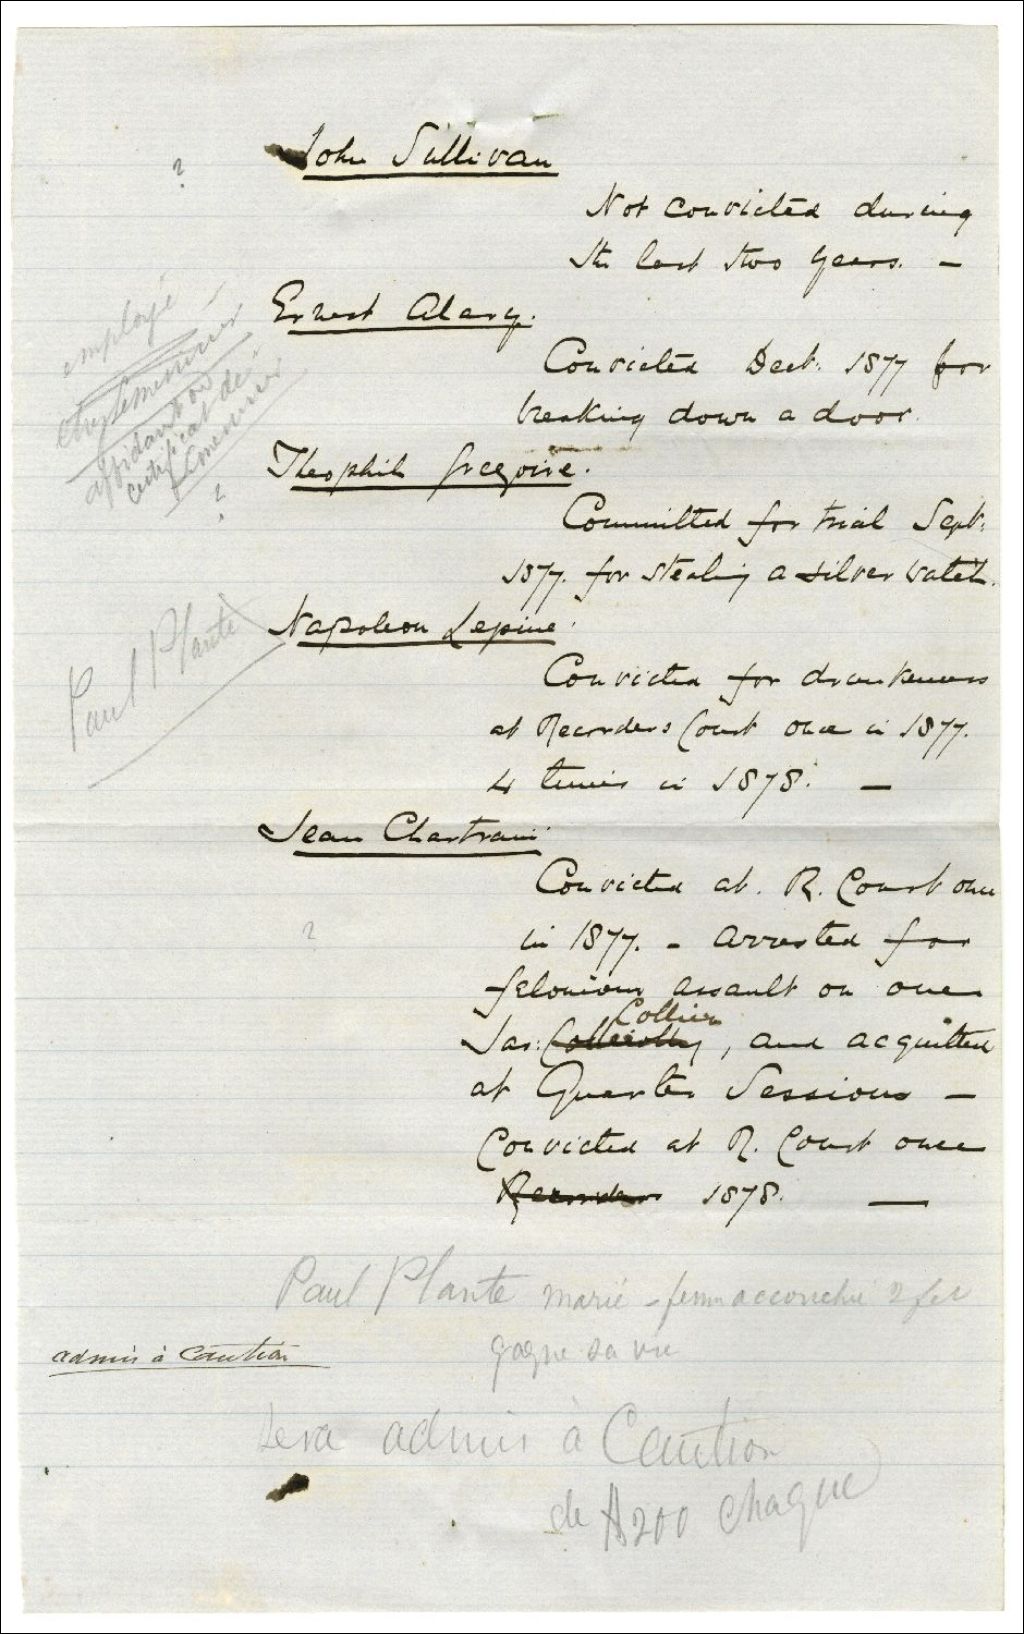 ?
John Sullivan
Not convicted during
the last two years. –
employé
Ernest Alary.
Convicted Dect. 1877 for
breaking down a door.
certificat de
Theophil Gregoire.
?
Committed for trial Sept.
1877. for stealing a silver watch.
Napoleon Lepine.
Paul Plante
Convicted for drunkenness
at Recorders Court once in 1877.
4 times in 1878. –
Jean Chartrand
Convicted at. R. Court once
?
in 1877. – arrested for
felonious assault on one
Collier
Jas: , and acquitted
at Quarter Sessions –
Convicted at R. Court once
Recorders 1878. —
Paul Plante marié – femme accouchée
gagne sa vie
admis à Caution
Sera admis à Caution
de $200 chaque